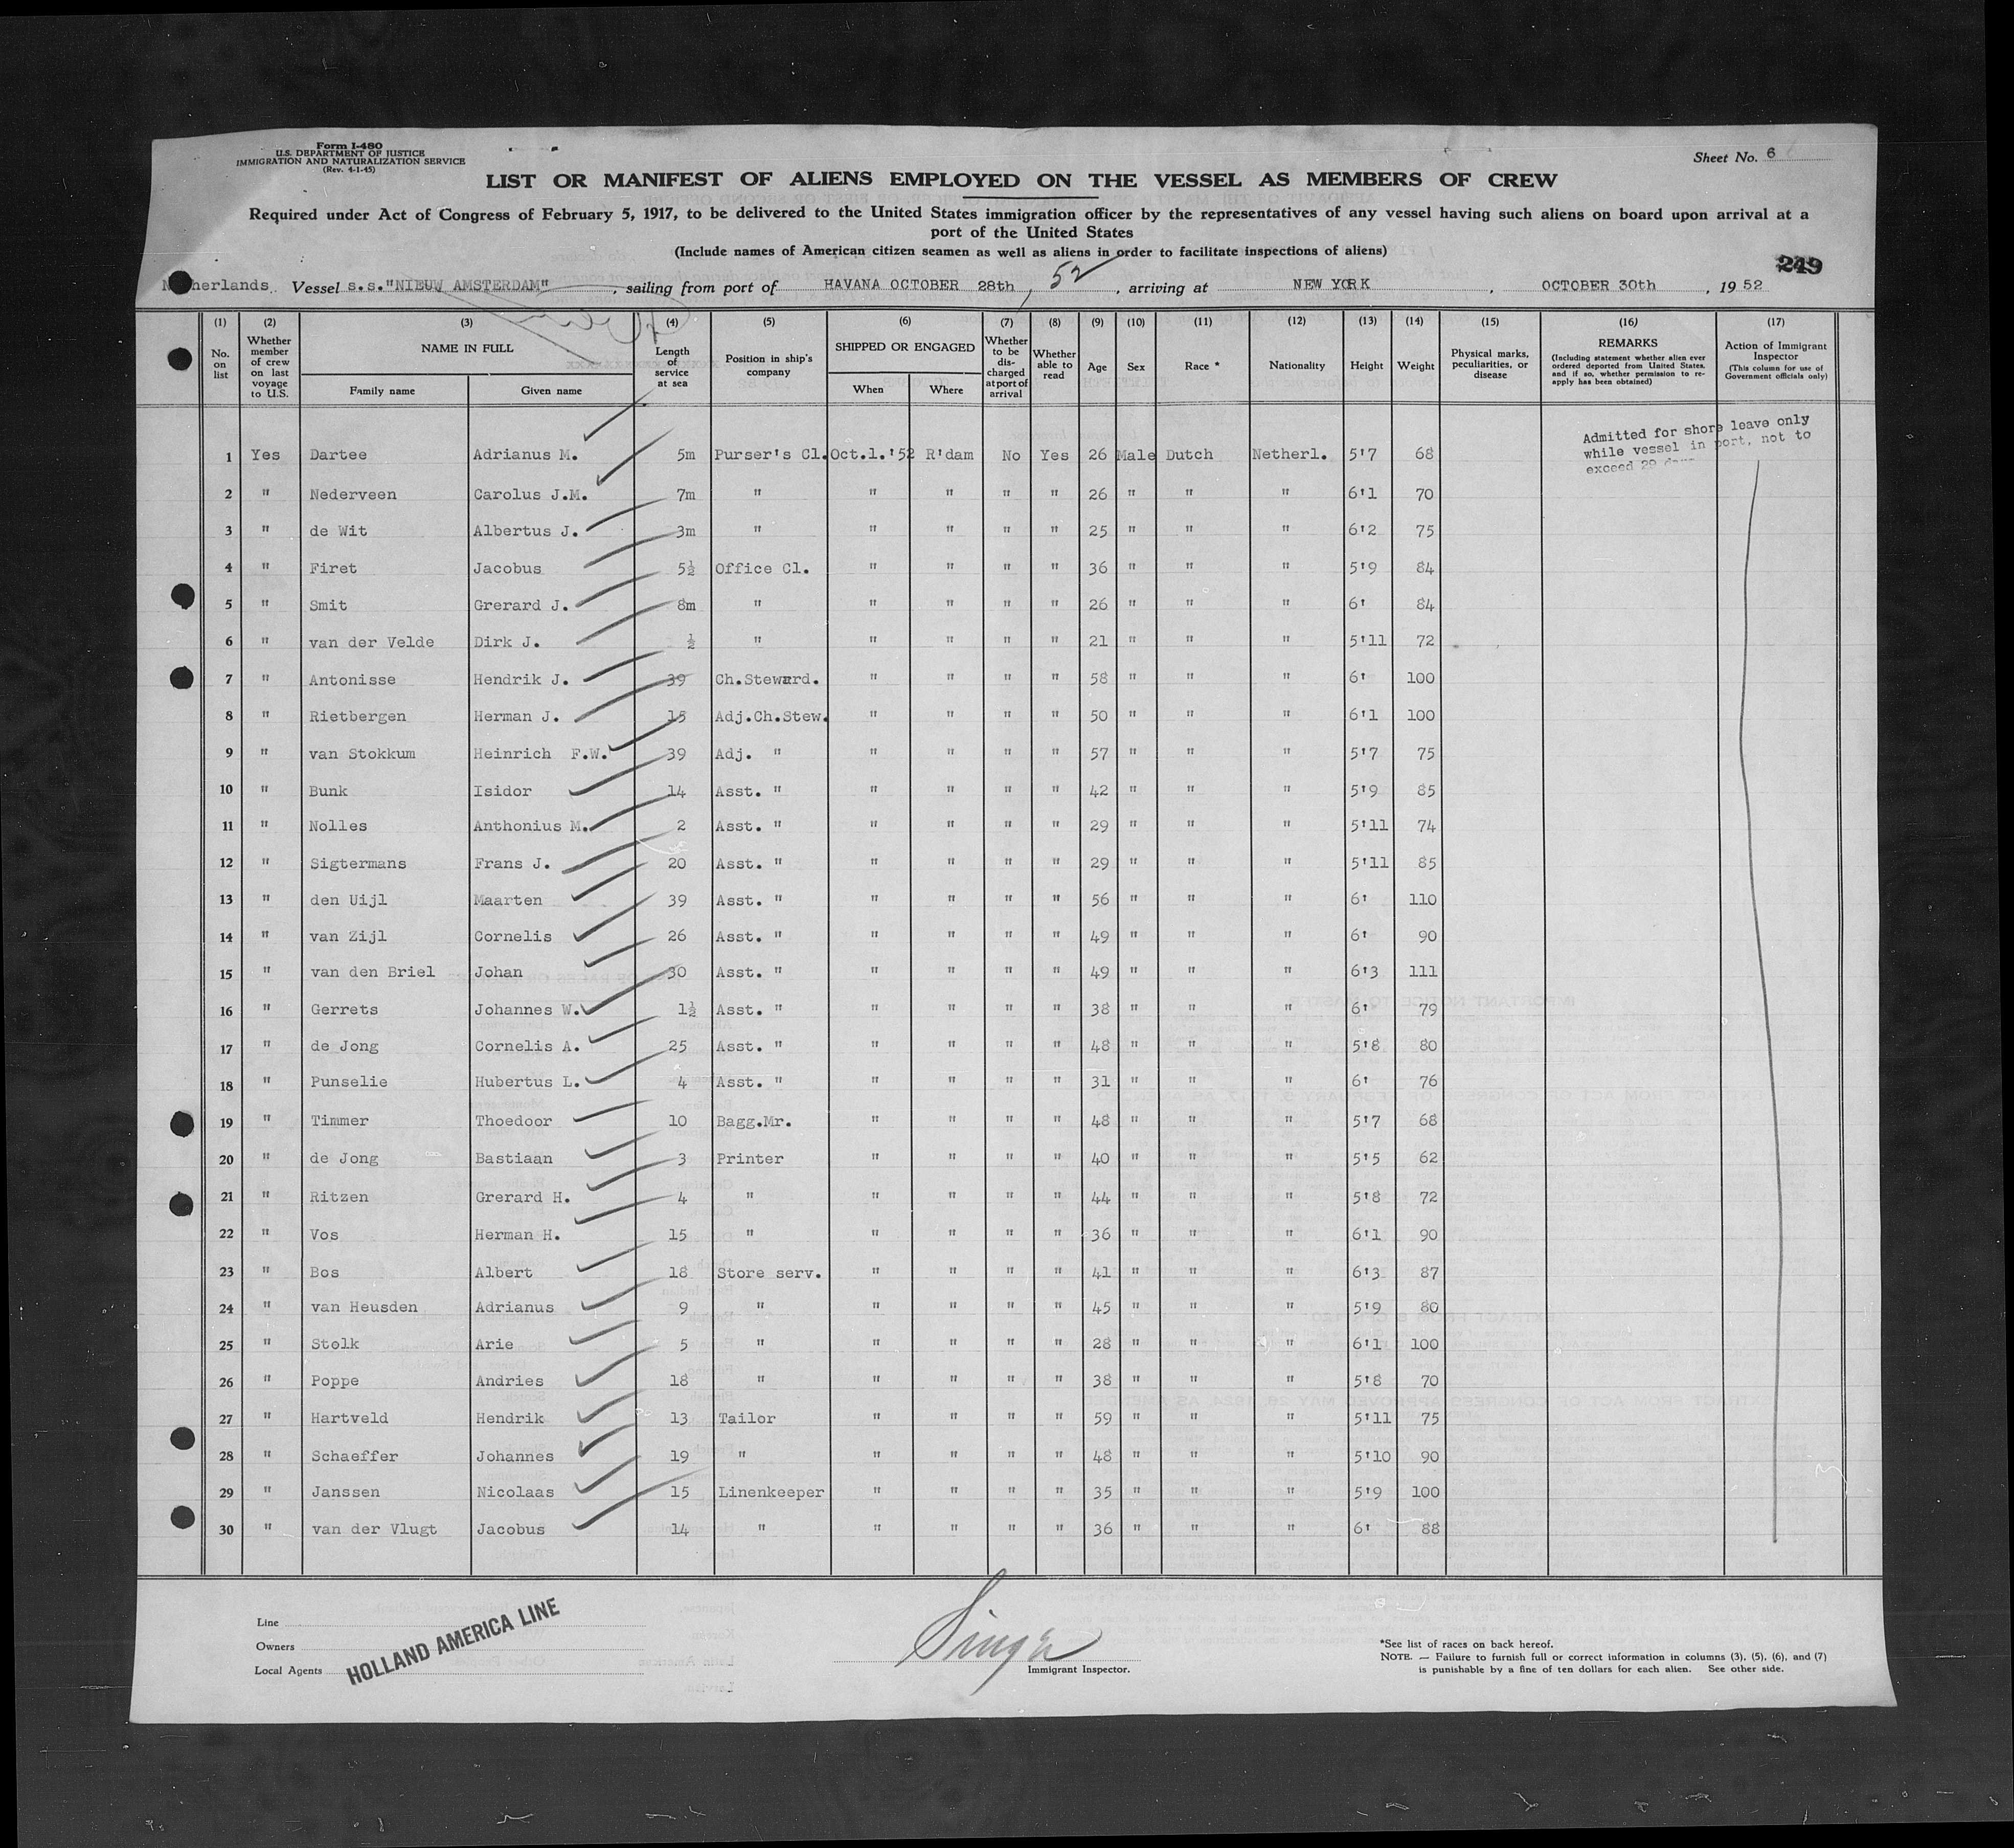 Form I-480
U.S. DEPARTMENT OF JUSTICE
IMMIGRATION AND NATURALIZATION SERVICE
(Rev. 4-1-45)
Sheet No. 6
LIST OR MANIFEST OF ALIENS EMPLOYED ON THE VESSEL AS MEMBERS OF CREW
Required under Act of Congress of February 5, 1917, to be delivered to the United States immigration officer by the representatives of any vessel having such aliens on board upon arrival at a
port of the United States
(Include names of American citizen seamen as well as aliens in order to facilitate inspections of aliens)
249
Netherlands. Vessel s.s."NIEUW AMSTERDAM", sailing from port of HAVANA OCTOBER 28th, 52, arriving at NEW YORK, OCTOBER 30th, 19 52
(1) (2) (3) (4) (5) (6) (7) (8) (9) (10) (11) (12) (13) (14) (15) (16) (17)
No. on list
Whether member of crew on last voyage to U.S.
NAME IN FULL
Family name
Given name
Length of service at sea
Position in ship's company
SHIPPED OR ENGAGED
When
Where
Whether to be discharged at port of arrival
Whether able to read
Age
Sex
Race *
Nationality
Height
Weight
Physical marks, peculiarities, or disease
REMARKS
(Including statement whether alien ever ordered deported from United States, and if so, whether permission to reapply has been obtained)
Action of Immigrant Inspector
(This column for use of Government officials only)
Admitted for shore leave only
while vessel in port, not to
exceed 29
1 Yes Dartee Adrianus M. 5m Purser's Cl. Oct.1.'52 R'dam No Yes 26 Male Dutch Netherl. 5'7 68
2 " Nederveen Carolus J.M. 7m " " " " " 26 " " " 6'1 70
3 " de Wit Albertus J. 3m " " " " " 25 " " " 6'2 75
4 " Firet Jacobus 5½ Office Cl. " " " " 36 " " " 5'9 84
5 " Smit Grerard J. 8m " " " " " 26 " " " 6' 84
6 " van der Velde Dirk J. ½ " " " " " 21 " " " 5'11 72
7 " Antonisse Hendrik J. 39 Ch.Steward. " " " " 58 " " " 6' 100
8 " Rietbergen Herman J. 15 Adj.Ch.Stew. " " " " 50 " " " 6'1 100
9 " van Stokkum Heinrich F.W. 39 Adj. " " " " " 57 " " " 5'7 75
10 " Bunk Isidor 14 Asst. " " " " " 42 " " " 5'9 85
11 " Nolles Anthonius M. 2 Asst. " " " " " 29 " " " 5'11 74
12 " Sigtermans Frans J. 20 Asst. " " " " " 29 " " " 5'11 85
13 " den Uijl Maarten 39 Asst. " " " " " 56 " " " 6' 110
14 " van Zijl Cornelis 26 Asst. " " " " " 49 " " " 6' 90
15 " van den Briel Johan 30 Asst. " " " " " 49 " " " 6'3 111
16 " Gerrets Johannes W. 1½ Asst. " " " " " 38 " " " 6' 79
17 " de Jong Cornelis A. 25 Asst. " " " " " 48 " " " 5'8 80
18 " Punselie Hubertus L. 4 Asst. " " " " " 31 " " " 6' 76
19 " Timmer Thoedoor 10 Bagg.Mr. " " " " 48 " " " 5'7 68
20 " de Jong Bastiaan 3 Printer " " " " 40 " " " 5'5 62
21 " Ritzen Grerard H. 4 " " " " " 44 " " " 5'8 72
22 " Vos Herman H. 15 " " " " " 36 " " " 6'1 90
23 " Bos Albert 18 Store serv. " " " " 41 " " " 6'3 87
24 " van Heusden Adrianus 9 " " " " " 45 " " " 5'9 80
25 " Stolk Arie 5 " " " " " 28 " " " 6'1 100
26 " Poppe Andries 18 " " " " " 38 " " " 5'8 70
27 " Hartveld Hendrik 13 Tailor " " " " 59 " " " 5'11 75
28 " Schaeffer Johannes 19 " " " " " 48 " " " 5'10 90
29 " Janssen Nicolaas 15 Linenkeeper " " " " 35 " " " 5'9 100
30 " van der Vlugt Jacobus 14 " " " " " 36 " " " 6' 88
Line
Owners
Local Agents
HOLLAND AMERICA LINE
Singer
Immigrant Inspector.
*See list of races on back hereof.
NOTE. — Failure to furnish full or correct information in columns (3), (5), (6), and (7)
is punishable by a fine of ten dollars for each alien. See other side.